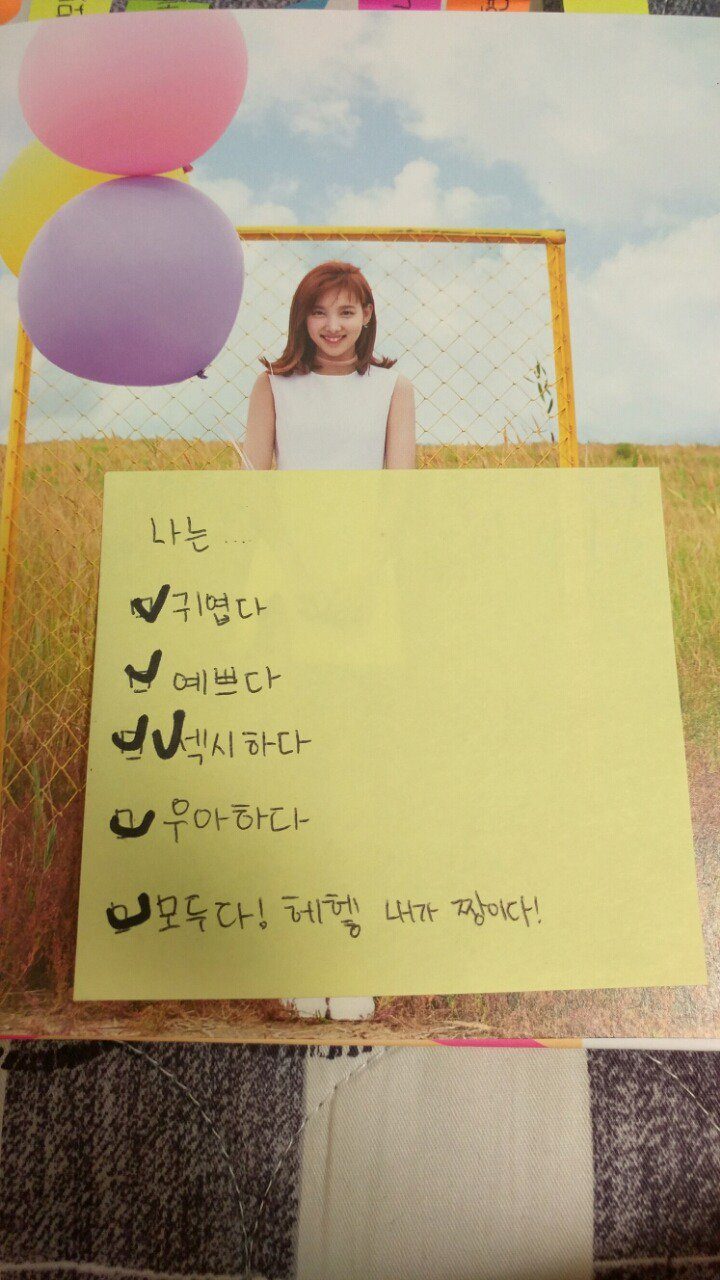 나는 ....
귀엽다
예쁘다
섹시하다
우아하다
모두다! 헤헿 내가 짱이다!